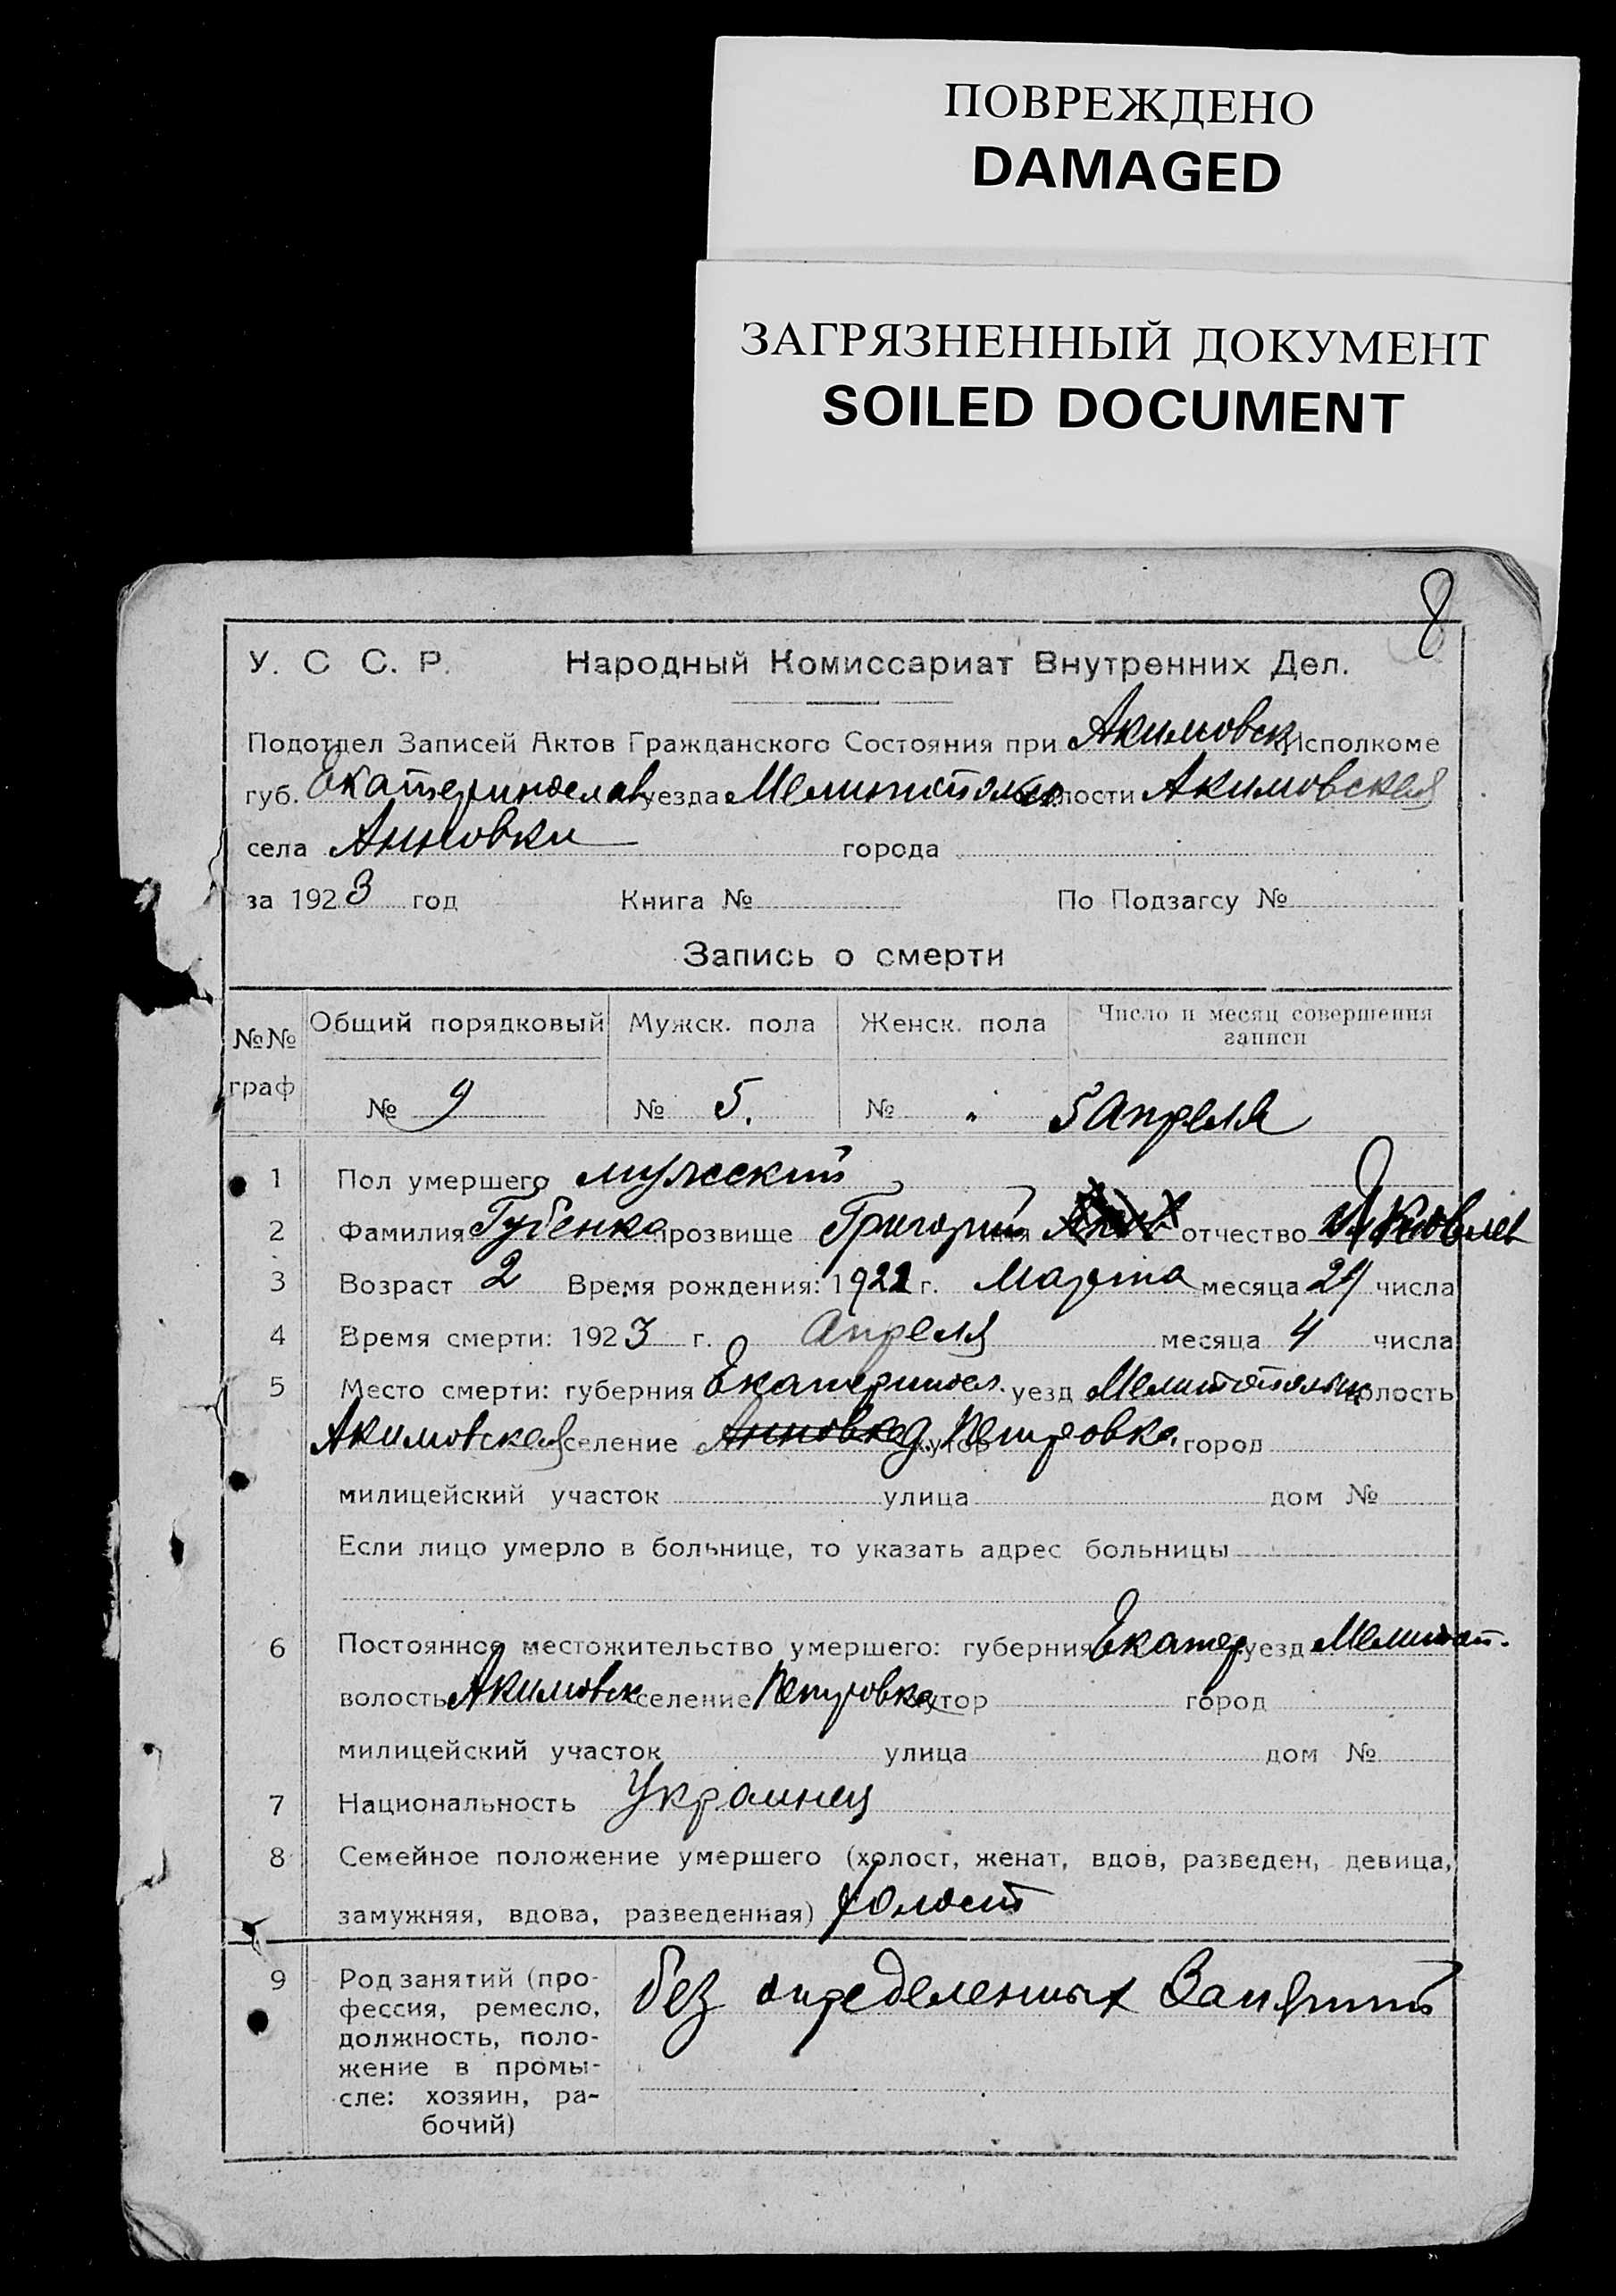 ПОВРЕЖДЕНО
DAMAGED
ЗАГРЯЗНЕННЫЙ ДОКУМЕНТ
SOILED DOCUMENT
8
У. С С. Р. Народный Комиссариат Внутренних Дел.
Подотдел Записей Актов Гражданского Состояния при Акимовск Исполкоме
губ. Екатеринослав уезда Мелитополь волости Акимовская
села Анновки города
за 1923 год Книга № По Подзагсу №
Запись о смерти
№№ граф Общий порядковый Мужск. пола Женск. пола Число и месяц совершения записи
№ 9 № 5. № " 5 Апреля
1 Пол умершего мужской
2 Фамилия Губенко прозвище Григорий имя отчество Яковлев
3 Возраст 2 Время рождения: 1921 г. Марта месяца 24 числа
4 Время смерти: 1923 г. Апреля месяца 4 числа
5 Место смерти: губерния Екатеринос. уезд Мелитопольск волость
Акимовская селение Анновка д. хутор Петровка город
милицейский участок улица дом №
Если лицо умерло в больнице, то указать адрес больницы
6 Постоянное местожительство умершего: губерния Екатер уезд Мелитоп.
волость Акимовск селение Петровка хутор город
милицейский участок улица дом №
7 Национальность Украинец
8 Семейное положение умершего (холост, женат, вдов, разведен, девица,
замужняя, вдова, разведенная) холост
9 Род занятий (про-
фессия, ремесло,
должность, поло-
жение в промы-
сле: хозяин, ра-
бочий)
без определенных Занятий